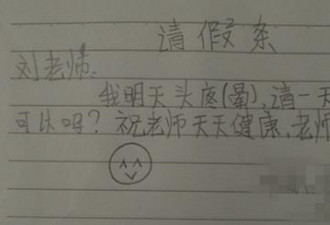 请假条
刘老师:
我明天头疼(晕),请一天
可以吗?祝老师天天健康,老师